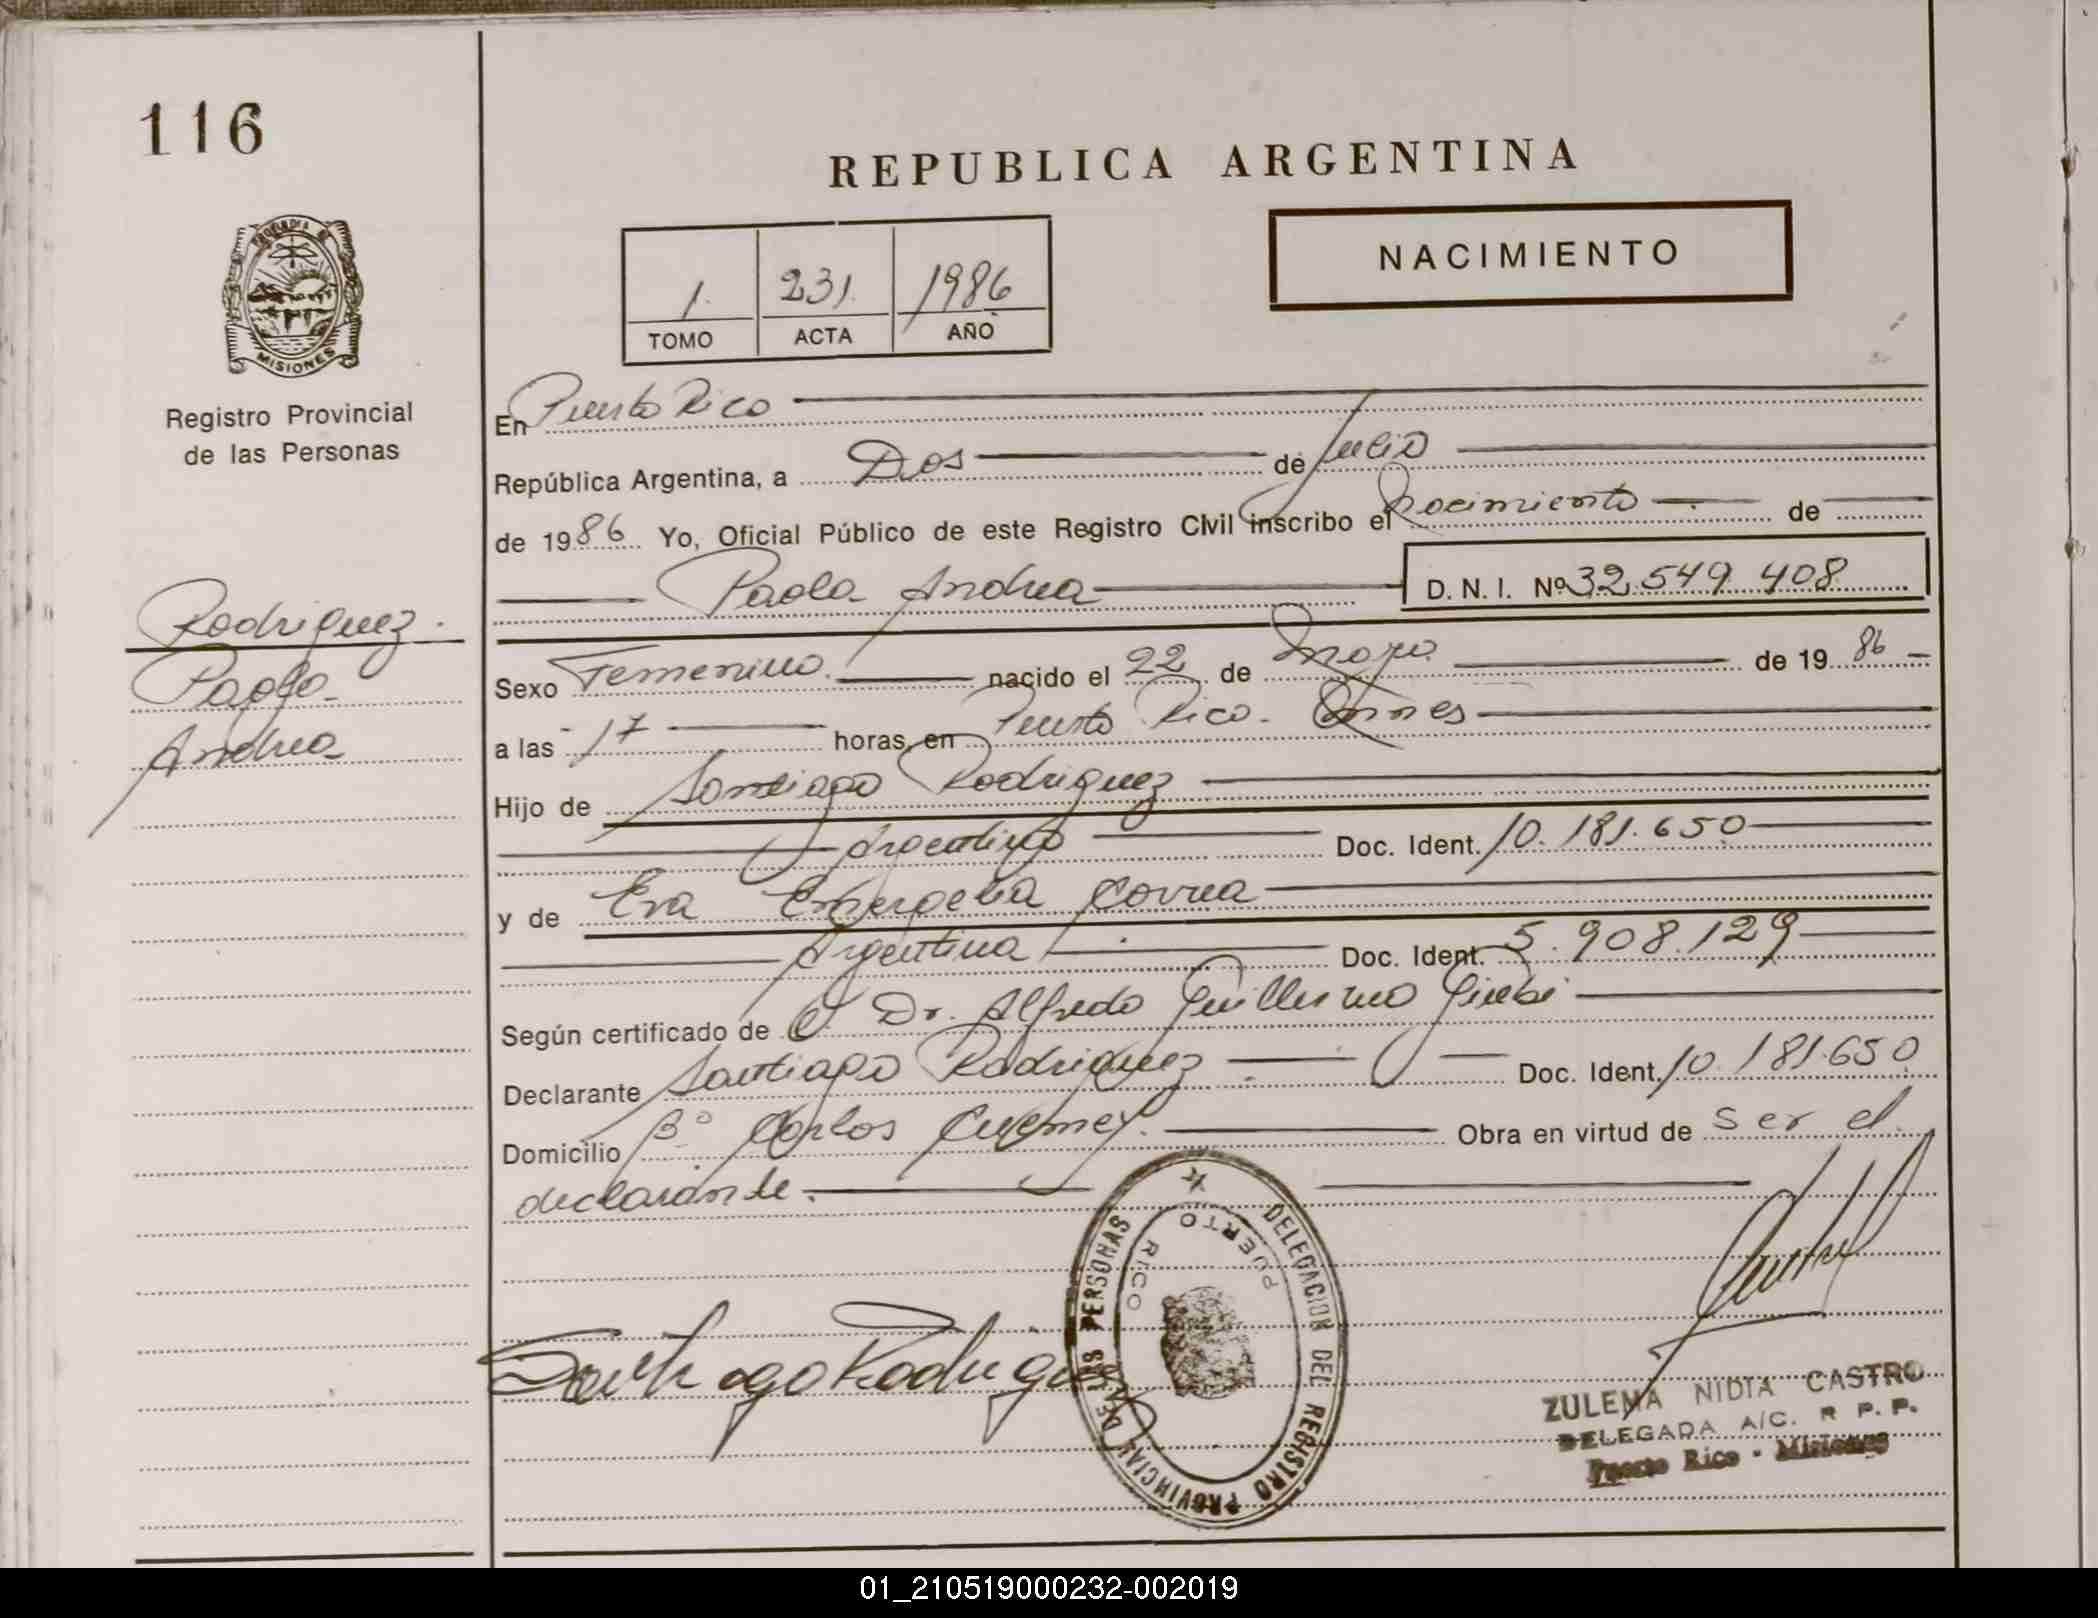 116
REPUBLICA ARGENTINA
NACIMIENTO
1. 231. 1986
TOMO ACTA AÑO
PROVINCIA DE
MISIONES
Registro Provincial
de las Personas
En Puerto Rico
República Argentina, a Dos de Julio
de 1986 Yo, Oficial Público de este Registro Civil inscribo el Nacimiento de
Paola Andrea D. N. I. Nº 32.549.408
Rodriguez.
Paola
Andrea
Sexo Femenino. nacido el 22 de Mayo de 1986
a las 17 horas, en Puerto Rico. Mnes
Hijo de Santiago Rodriguez
Argentino Doc. Ident. 10.181.650
y de Eva Correa
Argentina Doc. Ident. 5.908.129
Según certificado de Dr. Alfredo Guillermo
Declarante Santiago Rodriguez Doc. Ident. 10.181.650
Domicilio Bº Carlos Obra en virtud de ser el
declarante.
DELEGACION DEL REGISTRO PROVINCIAL DE LAS PERSONAS
PUERTO RICO
Santiago Rodriguez
ZULEMA NIDIA CASTRO
DELEGADA A/C. R P. P.
Puerto Rico - Misiones
01_210519000232-002019